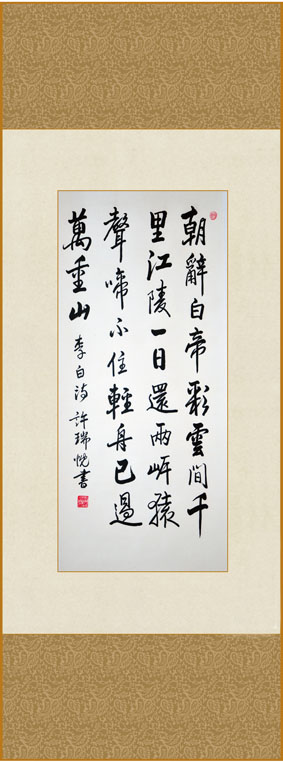 朝辭白帝彩雲間千
里江陵一日還兩岸猿
聲啼不住輕舟已過
萬重山
李白诗 許瑞悦書